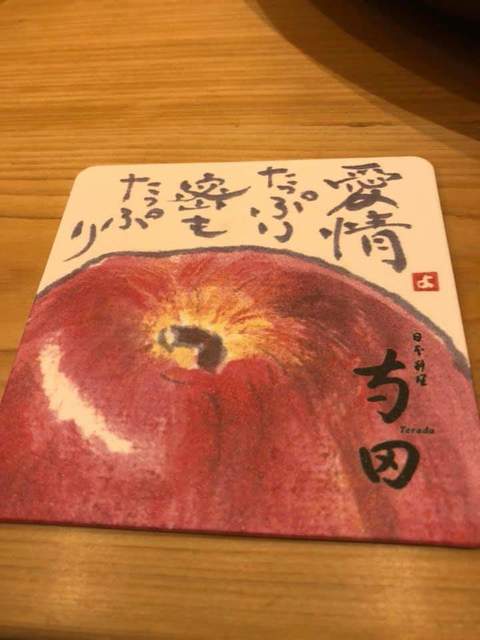 愛情
たっぷり
蜜も
たっぷり
よ
日本料理
寺田
Terada